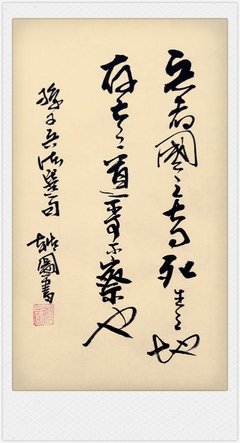 兵者國之大事死生之地
存亡之道不可不察也
孫子兵法選句
圖書